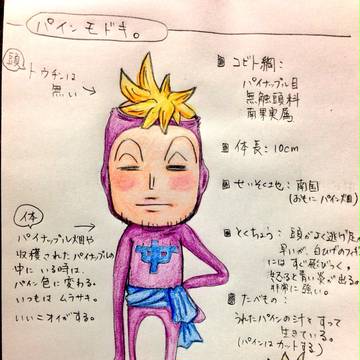 パインモドキ。
頭
トウチンは
無い →
■ コビト綱:
パイナップル目
無触頭科
南果実属
■ 体長: 10cm
■ せいそく地: 南国
(おもに パイン畑)
体
パイナップル畑や
収穫されたパイナップルの
中に いる時は、
パイン色に変わる。
いつもは ムラサキ。
いいニオイがする。
中
■ とくちょう: 頭がよく逃げ足
早いが、白ひげの
にはすぐ飛びつく。
怒ると青い炎が出る。
非常に強い。
■ たべもの:
うれたパインの汁をすって
生きている。
(パインはカットする)